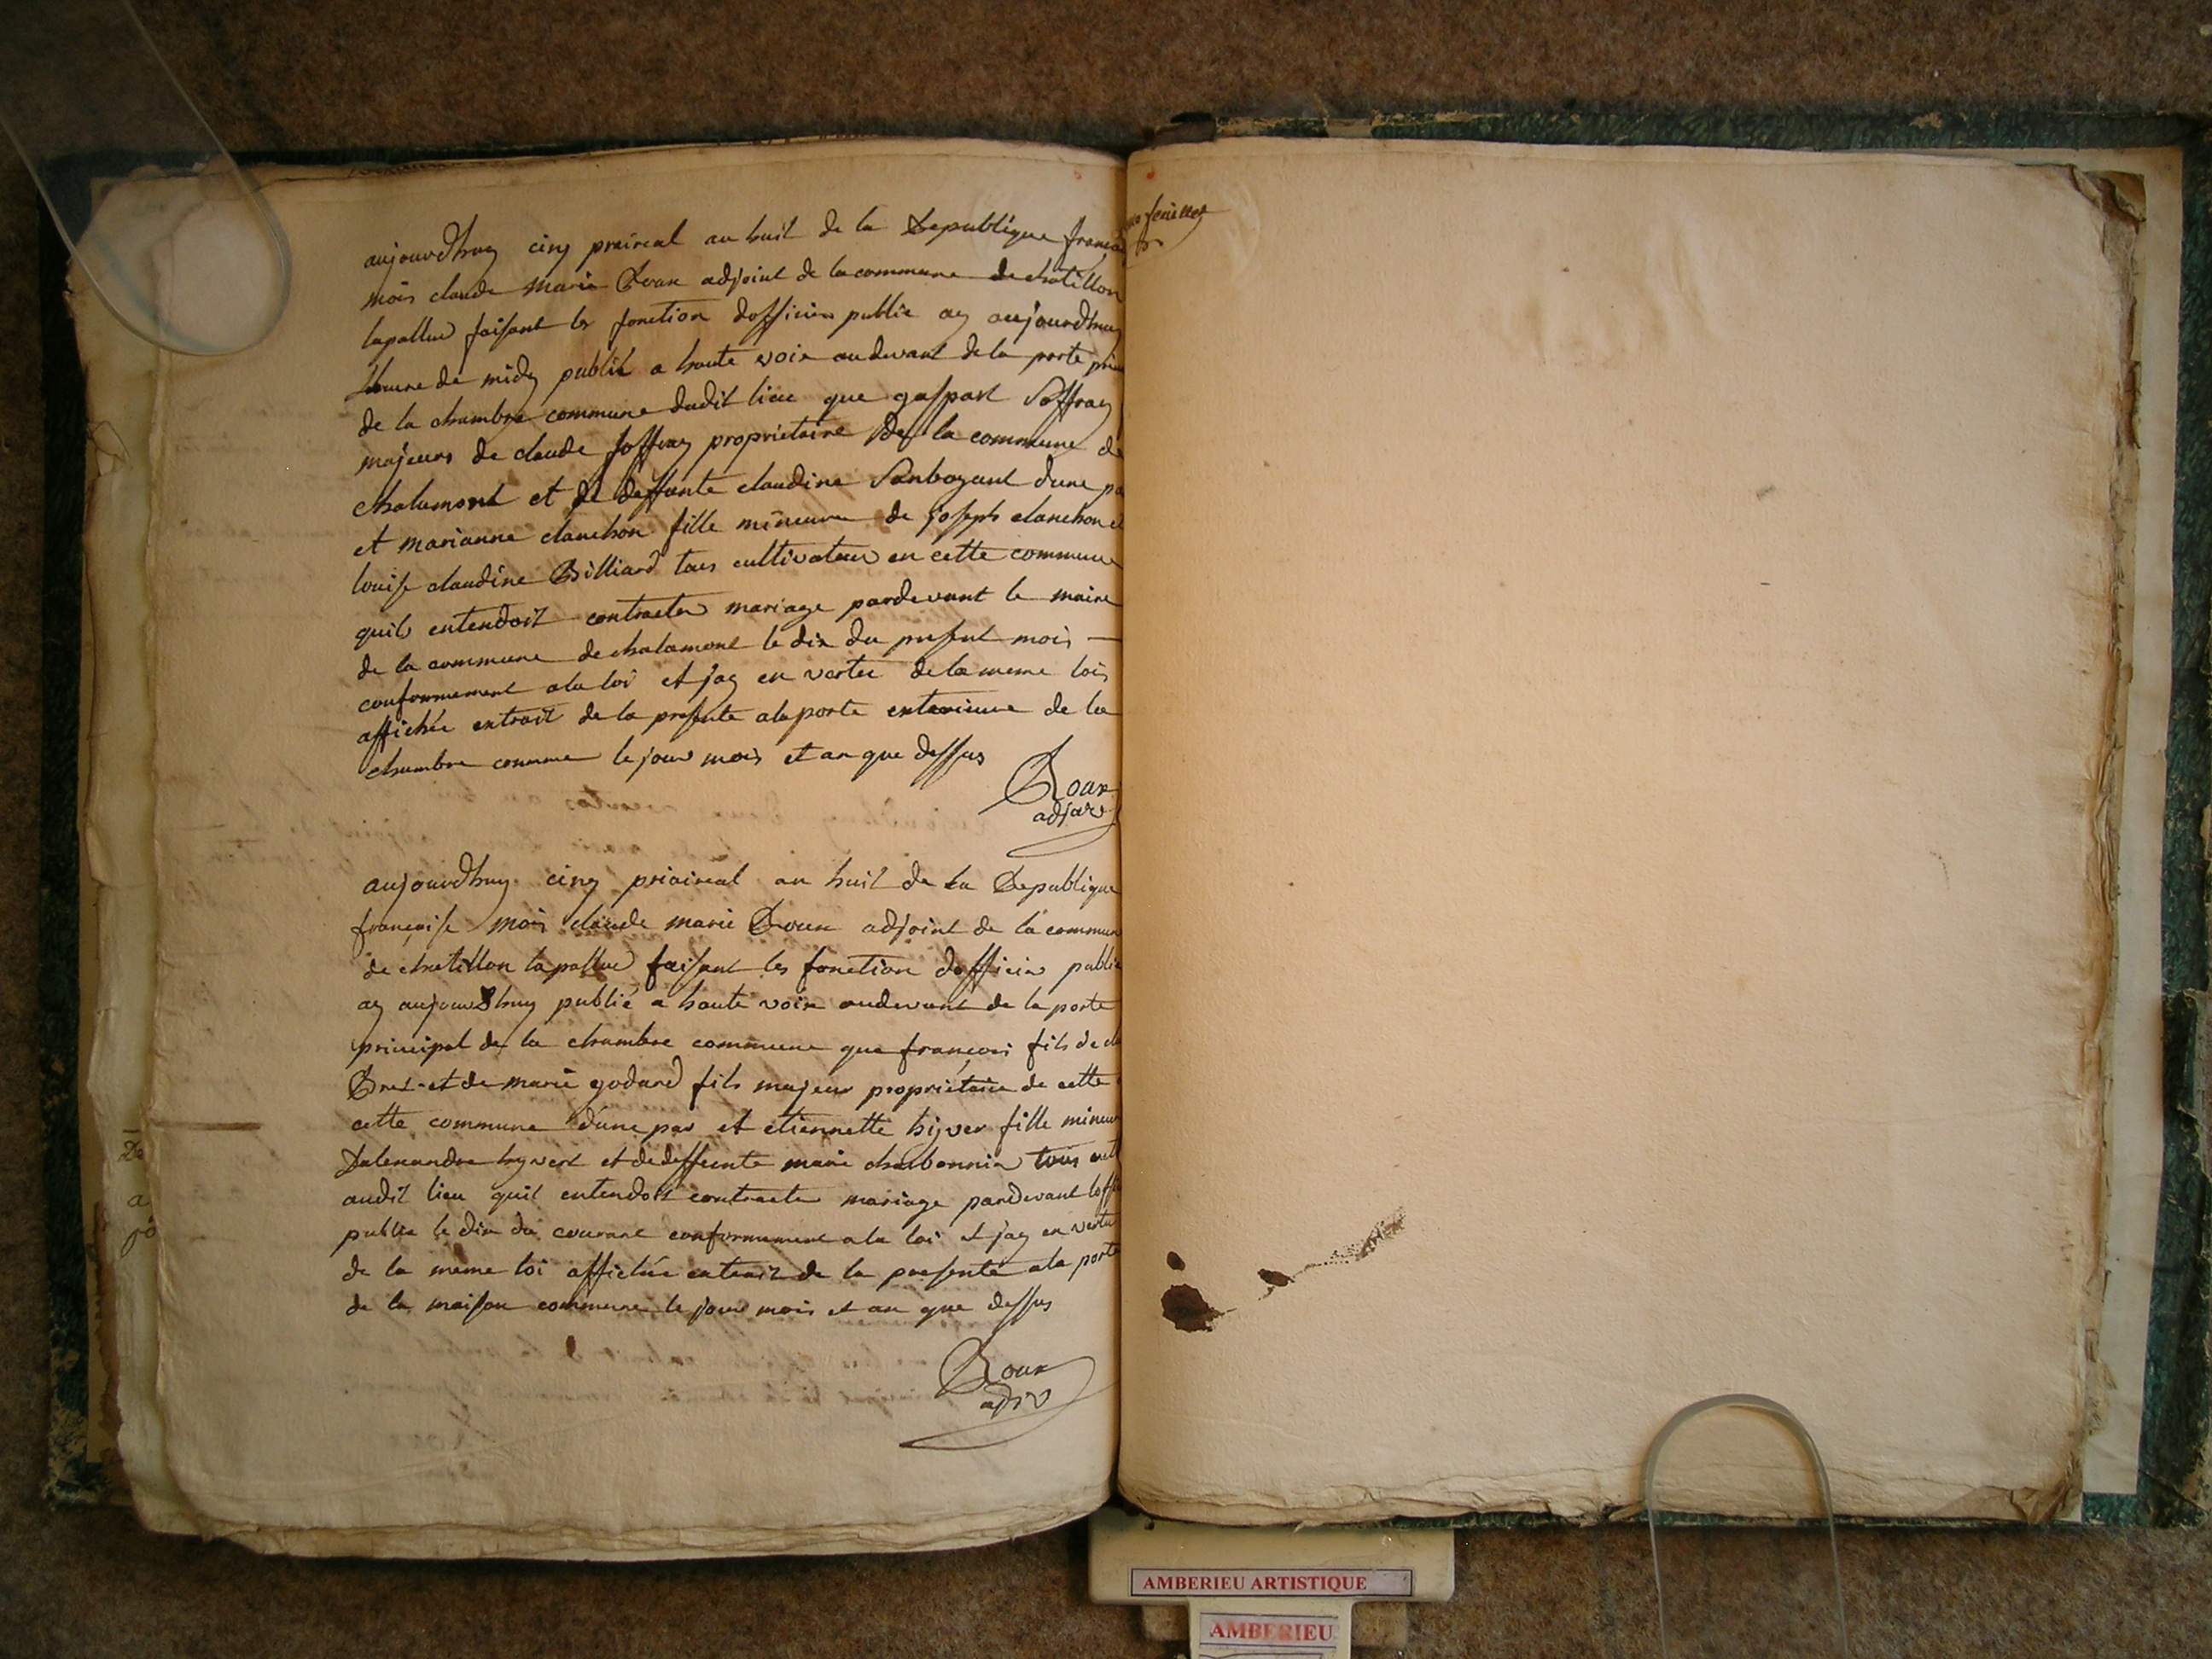 aujourdhuy cinq prairial an huit de la Republique francai
mois claude marie Roux adjoint de la commune de chatillon
lapallud faisant les fonction dofficier public ay aujourdhuy
heure de midy publié a haute voix au devant de la porte prin
de la chambre commune dudit lieu que gaspart Joffray
majeurs de claude joffray propriétaire de la commune de
chalamont et de deffunte claudine dune pa
et marianne clanchon fille mineure de joseph clanchon et
louise claudine Billiard tous cultivateur en cette commune
quils entendoit contracter mariage pardevant le maire
de la commune de chalamont le dix du present mois
conformement a la loi et jay en vertu de la meme lois
affichée extrait de la presente a la porte exterieure de la
chambre commune le jour mois et an que dessus
Roux
adj
aujourdhuy cinq priairial an huit de la Republique
française mois claude marie Roux adjoint de la commun
de chatillon lapallud faisant les fonction dofficier public
ay aujourdhuy publié a haute voix audevant de la porte
principal de la chambre commune que francois fils de cl
et de marie godard fils majeur propriétaire de cette
cette commune dune par et etiennette hyver fille mineur
Dalexandre hyvert et de deffeunte marie charbonnier tous cult
audit lieu quil entendoit contracter mariage pardevant loffi
public le dix du courant conformement a la loi et jay en vertu
de la meme loi affichée extrait de la presente a la porte
de la maison commune le jour mois et an que dessus
Roux
adj
feuillet
AMBERIEU ARTISTIQUE
AMBERIEU